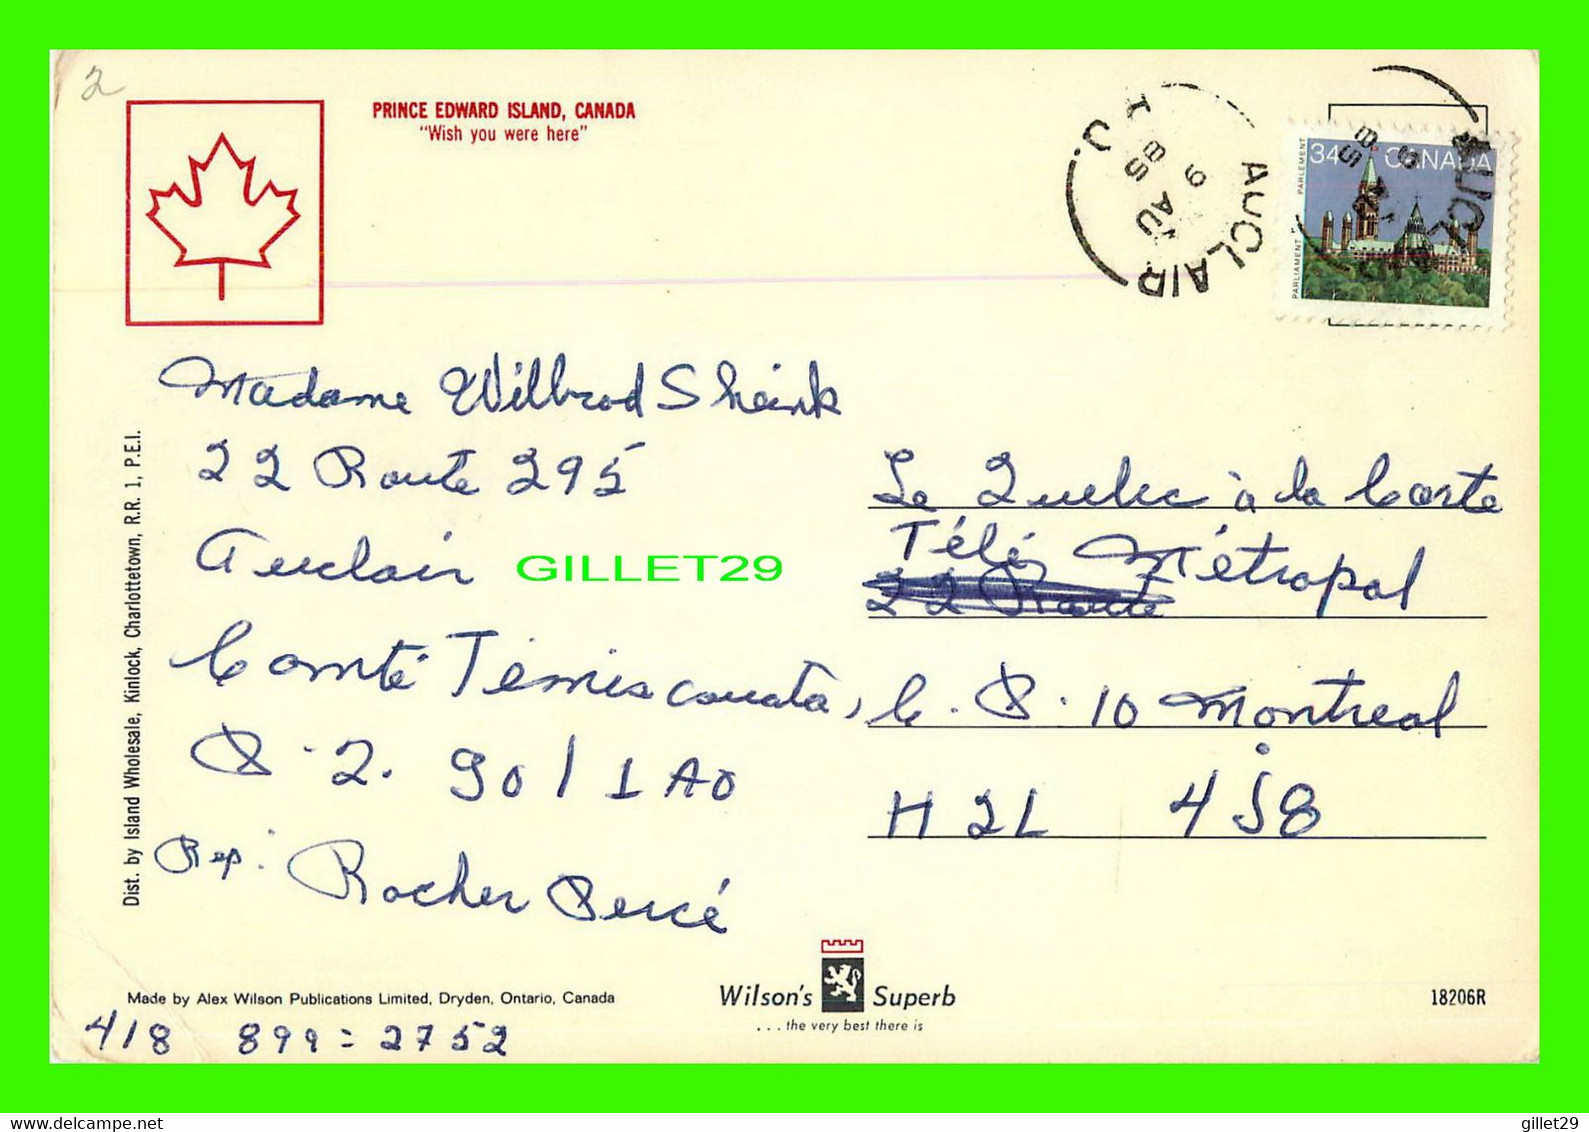 2
PRINCE EDWARD ISLAND, CANADA
"Wish you were here"
AUCLAIR
9 AU
85
34 CANADA
PARLIAMENT PARLEMENT
Madame Wilbrod Sheink
22 Route 295
Auclair
Comté Témiscouata,
Q-2. G0L 1A0
Rep: Rocher Percé
Le Quebec à la Carte
Télé Métropol
22 Route
C. P. 10 Montreal
H2L 4J8
GILLET29
Dist. by Island Wholesale, Kinlock, Charlottetown, R.R. 1, P.E.I.
Made by Alex Wilson Publications Limited, Dryden, Ontario, Canada
Wilson's Superb
... the very best there is
18206R
418 899=2752
www.delcampe.net
gillet29